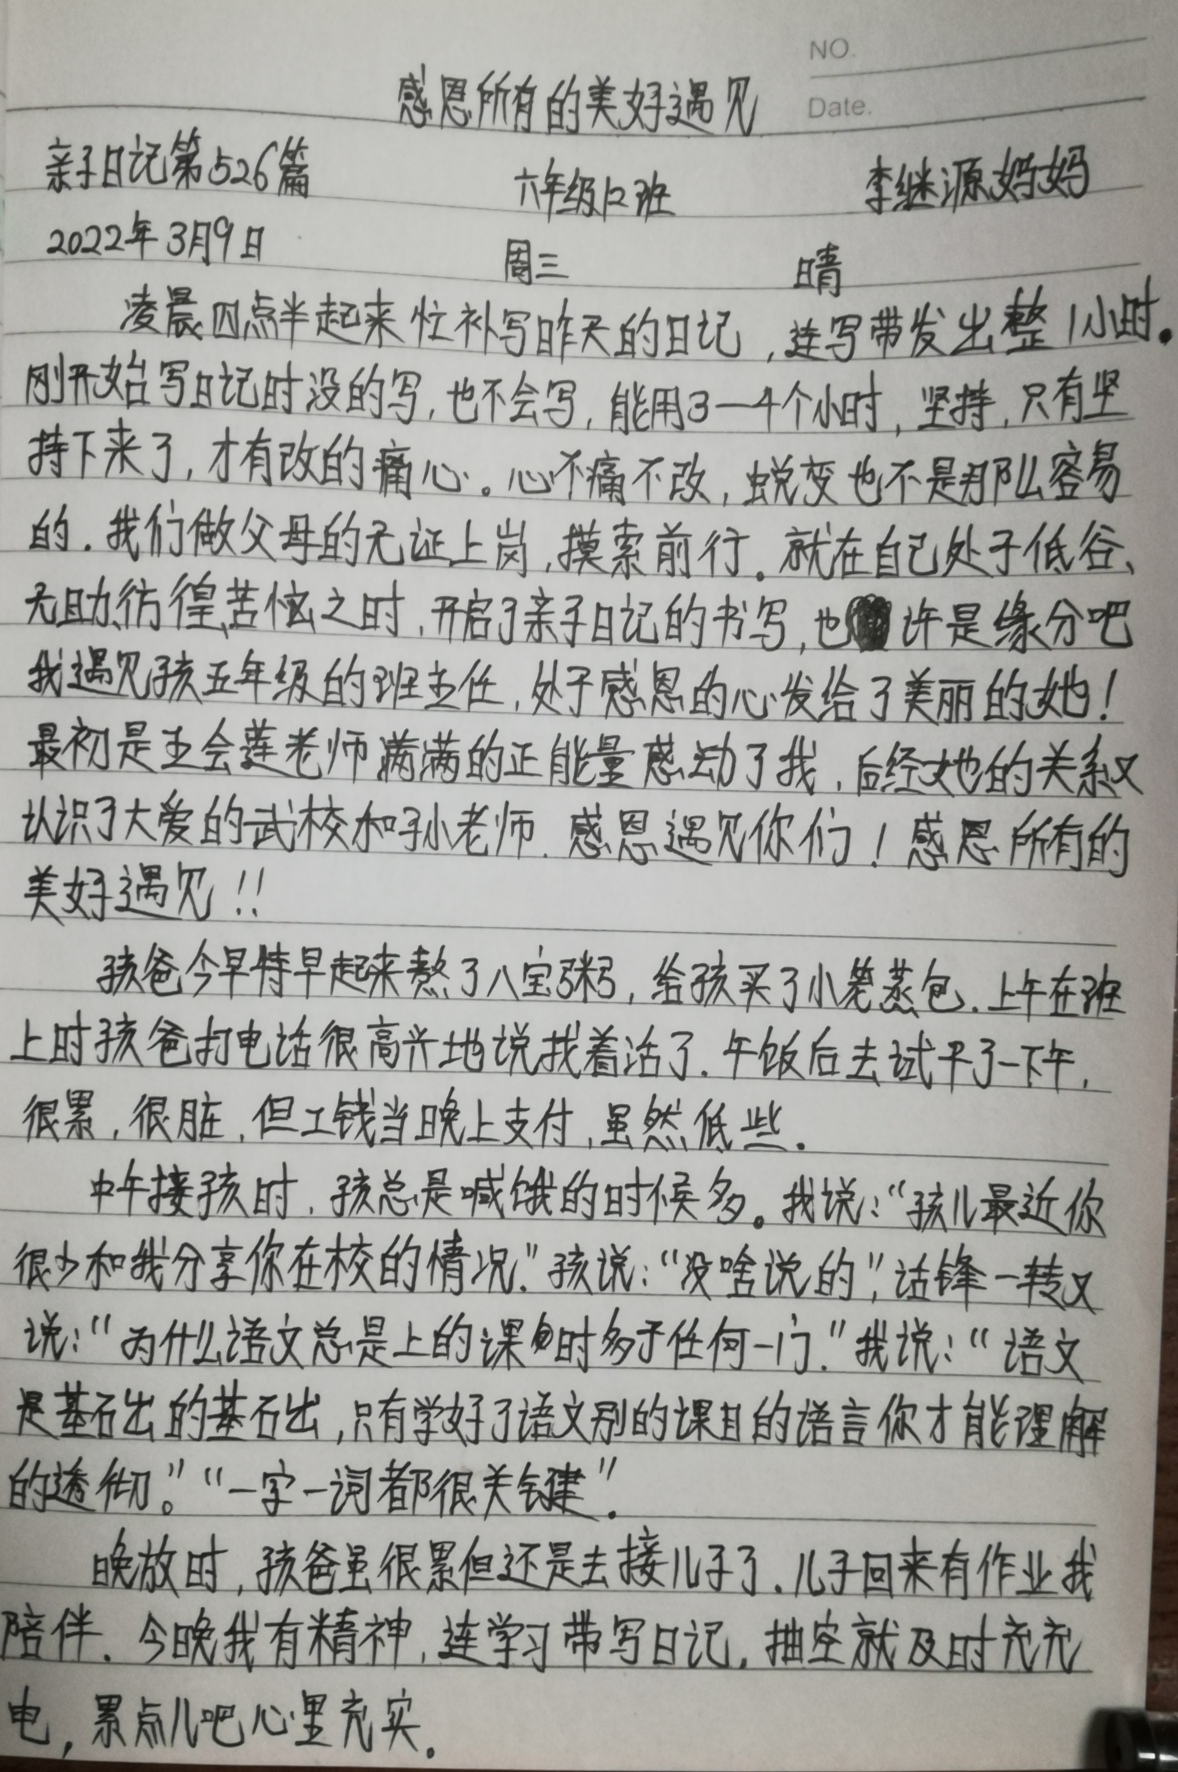 NO.
感恩所有的美好遇见
Date.
亲子日记第526篇 六年级12班 李继源妈妈
2022年3月9日 周三 晴
凌晨四点半起来忙补写昨天的日记，连写带发出整1小时。
刚开始写日记时没的写，也不会写，能用3—4个小时，坚持，只有坚
持下来了，才有改的痛心。心不痛不改，蜕变也不是那么容易
的．我们做父母的无证上岗，摸索前行。就在自己处于低谷、
无助、彷徨、苦恼之时，开启了亲子日记的书写，也许是缘分吧
我遇见孩五年级的班主任，处于感恩的心发给了美丽的她！
最初是王会莲老师满满的正能量感动了我，后经她的关系又
认识了大爱的武校和孙老师．感恩遇见你们！感恩所有的
美好遇见！！
孩爸今早特早起来熬了八宝粥，给孩买了小笼蒸包．上午在班
上时孩爸打电话很高兴地说找着活了．午饭后去试干了一下午，
很累，很脏，但工钱当晚上支付，虽然低些．
中午接孩时，孩总是喊饿的时候多。我说：“孩儿最近你
很少和我分享你在校的情况．”孩说：“没啥说的”，话锋一转又
说：“为什么语文总是上的课时多于任何一门．”我说：“语文
是基石出的基石出，只有学好了语文别的课目的语言你才能理解
的透彻。”“一字一词都很关键”．
晚放时，孩爸虽很累但还是去接儿子了．儿子回来有作业我
陪伴．今晚我有精神，连学习带写日记．抽空就及时充充
电，累点儿吧心里充实．